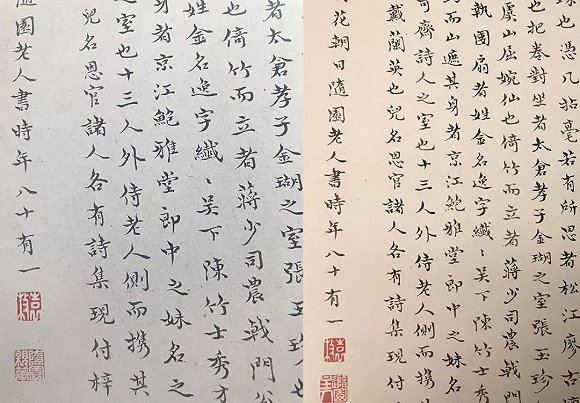 者太倉孝子金瑚之室張玉珍也
也倚竹而立者蔣少司農戟門公
姓金名逸字纖〻吳下陳竹士秀才
者京江鮑雅堂郎中之妹名之
之室也十三人外侍老人側而携其
兒名恩官諸人各有詩集現付梓
隨園老人書時年八十有一
珠也憑几拈毫若有所思者松江廖古檀
也把卷對坐者太倉孝子金瑚之室張玉珍也
虞山屈婉仙也倚竹而立者蔣少司農戟門
執團扇者姓金名逸字纖〻吳下陳竹士秀
而山遮其身者京江鮑雅堂郎中之妹名
齋詩人之室也十三人外侍老人側而携
戴蘭英也兒名恩官諸人各有詩集現付
花朝日隨園老人書時年八十有一